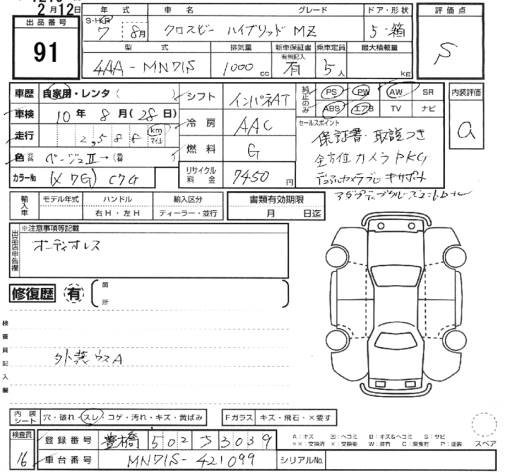 2月12日
出品番号
91
年式 車名 グレード ドア・形状
7年 8月 クロスビー ハイブリッド MZ 5 箱
型式 排気量 新車保証書 乗車定員 最大積載量
有無記入
4AA-MN71S 1000 cc 有 5人 kg
評価点
S
車歴 自家用・レンタ( )
車検 10年8月(28日)
走行 2,588 km マイル
色 ベージュⅡ→(替 )
カラーNo. (X7G) C7G
シフト インパネAT
冷房 AAC
燃料 G
リサイクル料金 7450円
純正のみ
PS PW AW SR
ABS エアB TV ナビ
内装評価
a
セールスポイント
保証書・取説つき
全方位カメラPKG
デュアルカメラブレーキサポート
輸入車
モデル年式 ハンドル 輸入区分
右H・左H ディーラー・並行
書類有効期限
月 日迄
出品店申告欄
※注意事項等記載
オーディオレス
修復歴 有 箇所
検査員記入欄
外装ウスA
内装シート 穴・破れ・スレ・コゲ・汚れ・キズ・黄ばみ
Fガラス キズ・飛石・×要す
検査員
16
登録番号 豊橋 502 す 3039
車台番号 MN71S-421099
シリアルNo.
スペア